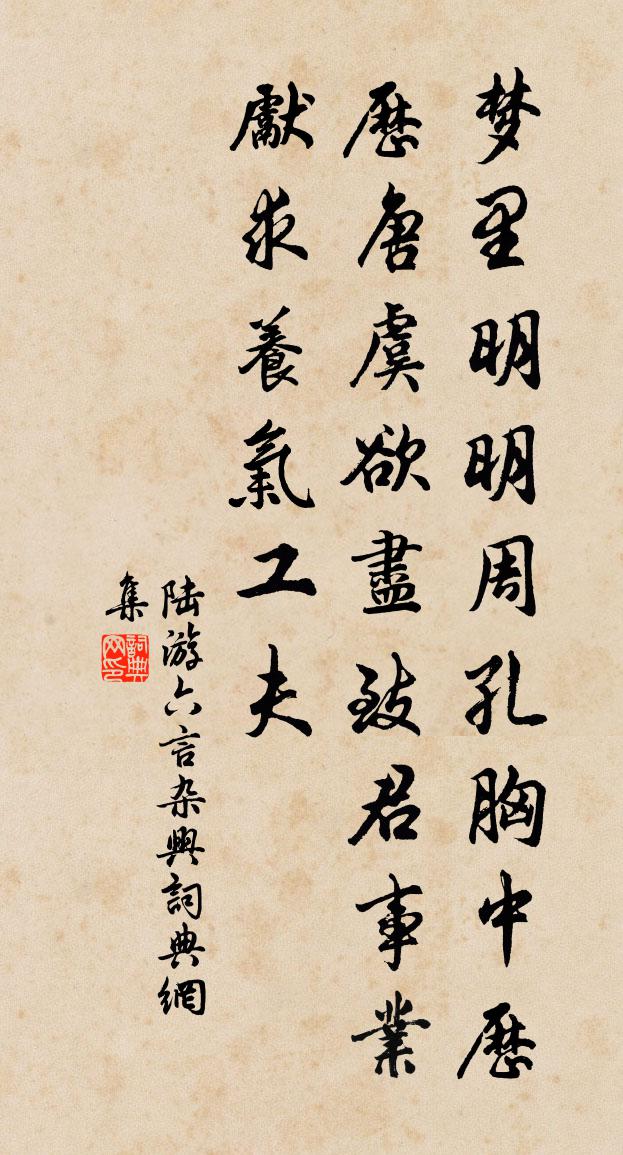 梦里明明周孔胸中歷
歷唐虞欲盡致君事業
獻求養氣工夫
陆游六言杂興詞典網
集
詞典网印